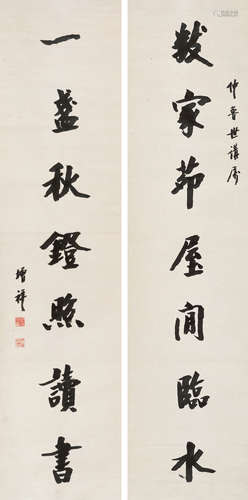 仲魯世講屬
數家茆屋閒臨水
一盞秋鐙照讀書
增祥